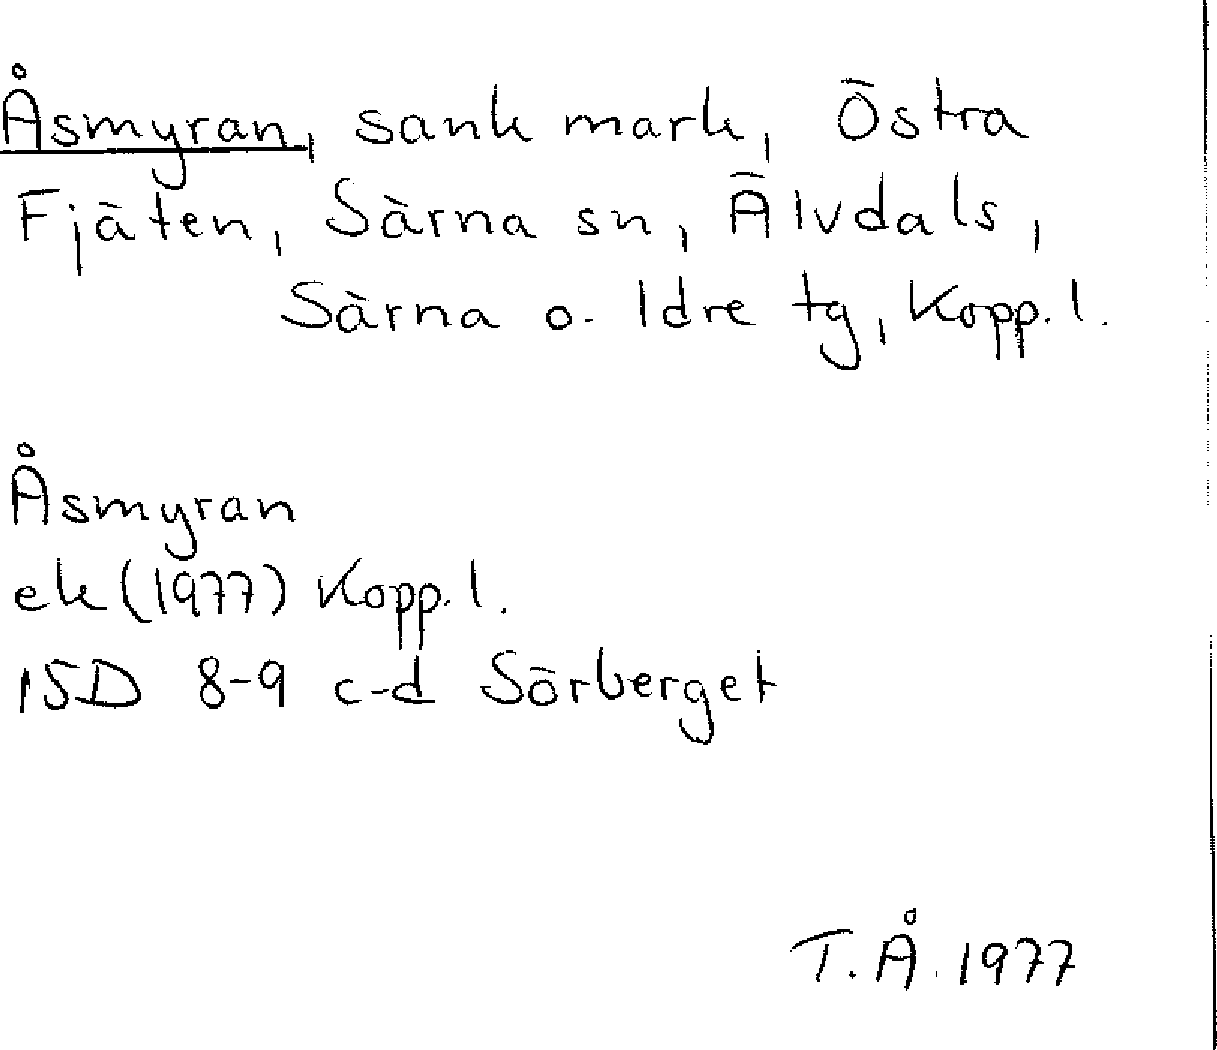 Åsmyran, sank mark, Östra
Fjäten, Särna sn, Älvdals,
Särna o. Idre tg, Kopp. l.
Åsmyran
ek (1977) Kopp. l.
15D 8-9 c-d Sörberget
T. Å. 1977